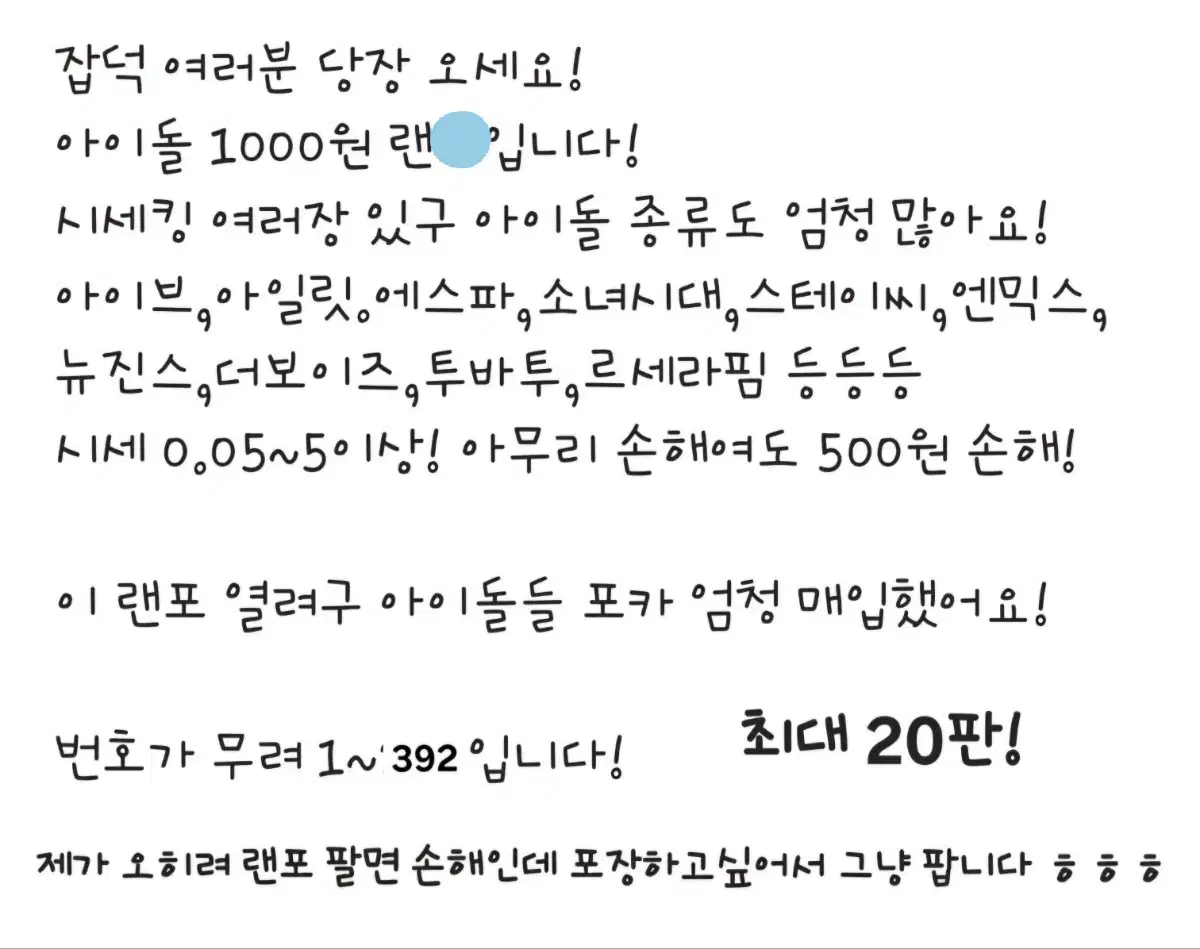 잡덕 여러분 당장 오세요!
아이돌 1000원 랜 입니다!
시세킹 여러장 있구 아이돌 종류도 엄청 많아요!
아이브,아일릿.에스파,소녀시대,스테이씨,엔믹스,
뉴진스,더보이즈,투바투,르세라핌 등등등
시세 0.05~5이상! 아무리 손해여도 500원 손해!
이 랜포 열려구 아이돌들 포카 엄청 매입했어요!
번호가 무려 1~392 입니다!
최대 20판!
제가 오히려 랜포 팔면 손해인데 포장하고싶어서 그냥 팝니다 ㅎ ㅎ ㅎ